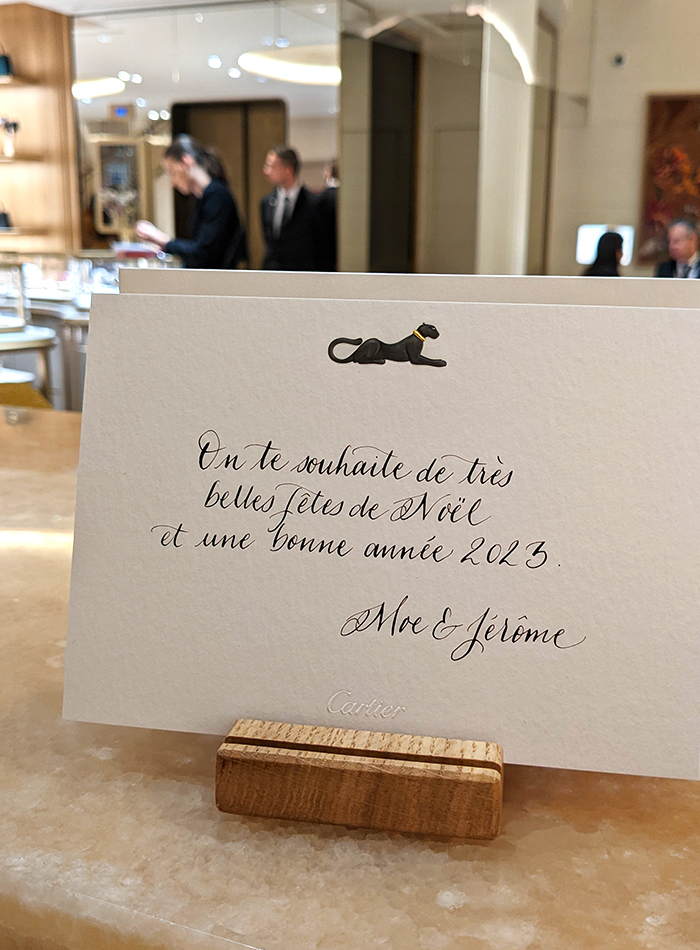 On te souhaite de très
belles fêtes de Noël
et une bonne année 2023.
Moe & Jérôme
Cartier